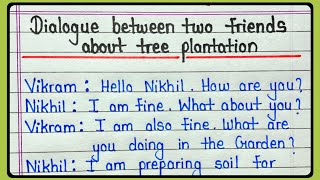 Dialogue between two friends
about tree plantation
Vikram : Hello Nikhil. How are you?
Nikhil : I am fine. What about you?
Vikram : I am also fine. What are
you doing in the Garden?
Nikhil : I am preparing soil for